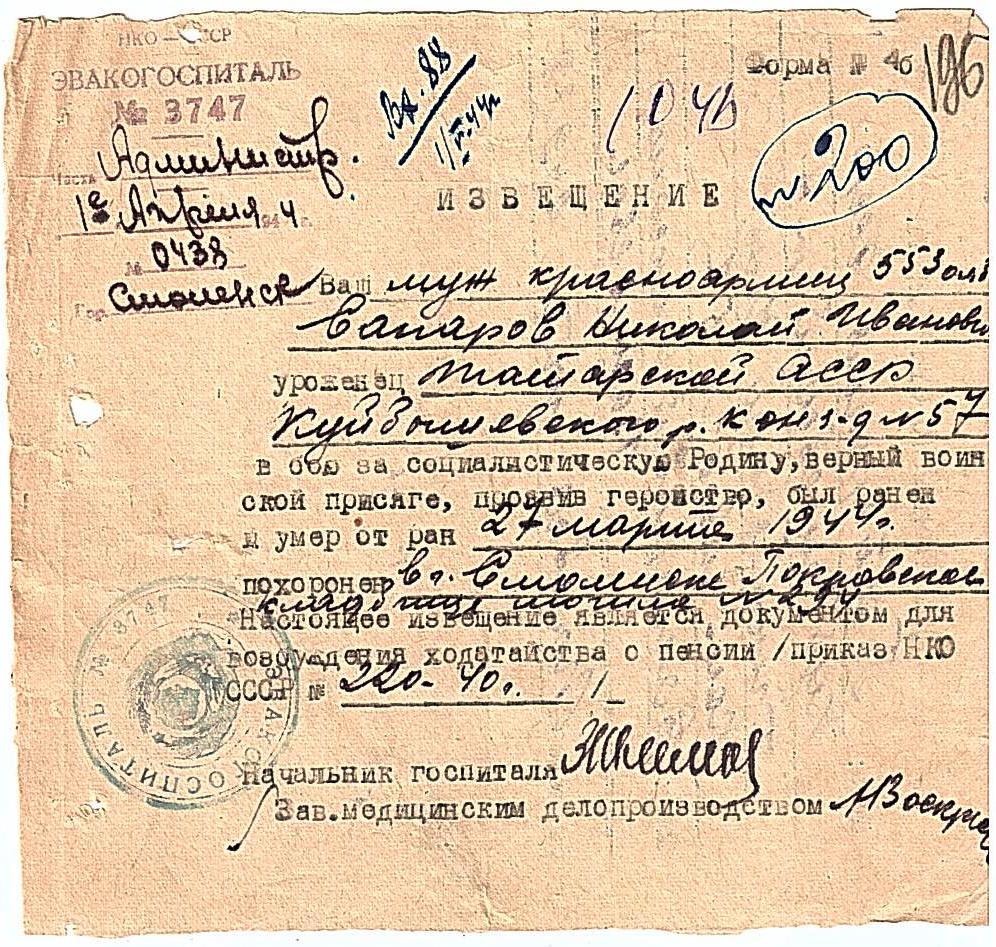 НКО — СССР
ЭВАКОГОСПИТАЛЬ
№ 3747
Часть Администр.
1е Апреля 1944 г.
№ 0438
Гор. Смоленск
Вх. 88
Форма № 4б
196
1046
№ 200
ИЗВЕЩЕНИЕ
Ваш муж красноармеец 553
Сапаров Николай Иванович
уроженец Татарской АССР
Куйбышевского р. кон з-д № 57
в бою за социалистическую Родину, верный воин
ской присяге, проявив геройство, был ранен
и умер от ран 27 марта 1944г.
похоронен в г. Смоленске Покровское
кладбище могила № 294
Настоящее извещение является документом для
возбуждения ходатайства о пенсии /приказ НКО
СССР № 220-40г. /
Начальник госпиталя
Зав.медицинским делопроизводством
ЭВАКОГОСПИТАЛЬ № 3747